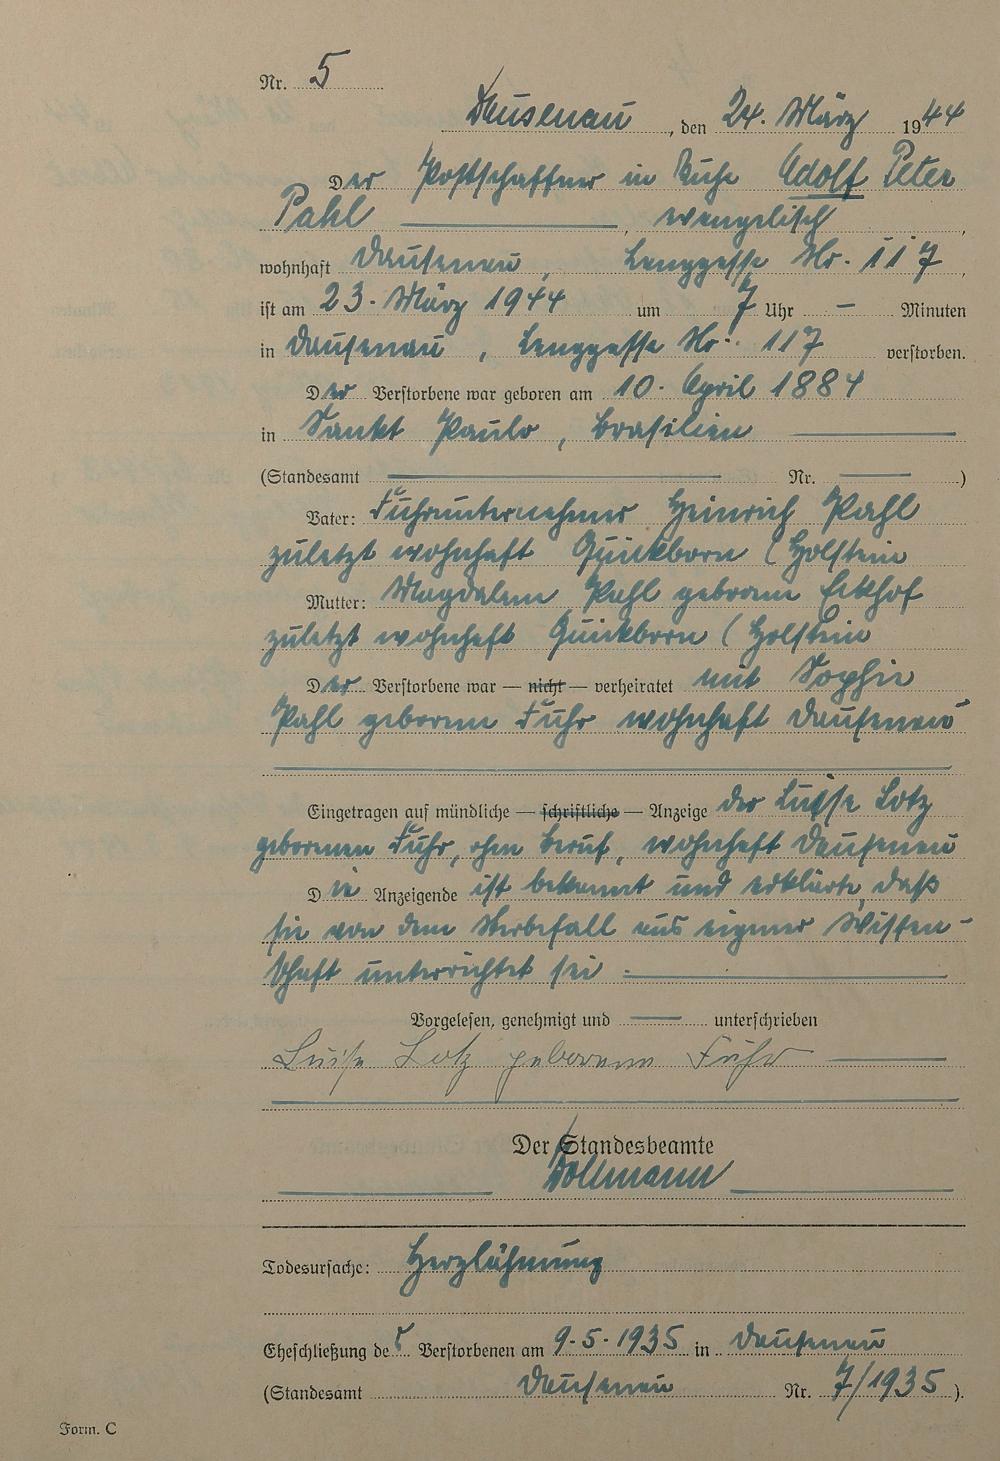 Nr. 5
Dausenau, den 24. März 1944
Der Postschaffner in Ruhe Adolf Peter
Pahl, evangelisch,
wohnhaft Dausenau, Langgasse Nr. 117,
ist am 23. März 1944 um 7 Uhr – Minuten
in Dausenau, Langgasse Nr. 117 verstorben.
Der Verstorbene war geboren am 10. April 1884
in Sankt Paulo, Brasilien
(Standesamt Nr. )
Vater: Fuhrunternehmer Heinrich Pahl
zuletzt wohnhaft Quickborn (Holstein
Mutter: Magdalena Pahl geborene Eckhof
zuletzt wohnhaft Quickborn (Holstein
Der Verstorbene war — nicht — verheiratet mit Sophie
Pahl geborene Fuhr wohnhaft Dausenau
Eingetragen auf mündliche — schriftliche — Anzeige der Luise Lotz
geborenen Fuhr, ohne Beruf, wohnhaft Dausenau
Die Anzeigende ist bekannt und erklärte, daß
sie von dem Sterbefall aus eigener Wissen-
schaft unterrichtet sei.
Vorgelesen, genehmigt und unterschrieben
Luise Lotz geborene Fuhr
Der Standesbeamte
Todesursache: Herzlähmung
Eheschließung des Verstorbenen am 9.5.1935 in Dausenau
(Standesamt Dausenau Nr. 7/1935).
Form. C